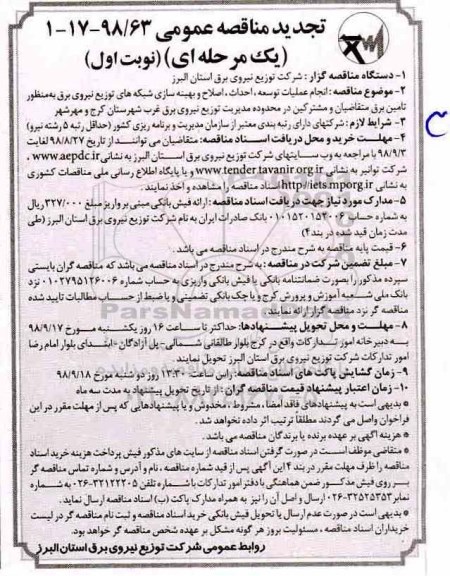 تجدید مناقصه عمومی ۹۸/۶۳-۱۷-۱
(یک مرحله ای) (نوبت اول)
۱- دستگاه مناقصه گزار : شرکت توزیع نیروی برق استان البرز
۲- موضوع مناقصه : انجام عملیات توسعه ، احداث ، اصلاح و بهینه سازی شبکه های توزیع نیروی برق به‌منظور
تامین برق متقاضیان و مشترکین در محدوده مدیریت توزیع نیروی برق غرب شهرستان کرج و مهرشهر
۳- شرایط لازم : شرکتهای دارای رتبه بندی معتبر از سازمان مدیریت و برنامه ریزی کشور (حداقل رتبه ۵ رشته نیرو)
۴- مهلت خرید و محل دریافت اسناد مناقصه: متقاضیان می توانند از تاریخ ۹۸/۸/۲۷ لغایت
۹۸/۹/۳ با مراجعه به وب سایتهای شرکت توزیع نیروی برق استان البرز به نشانی www.aepdc.ir ،
شرکت توانیر به نشانی www.tender.tavanir.org.ir و یا پایگاه اطلاع رسانی ملی مناقصات کشوری
به نشانی http://iets.mporg.ir اسناد مناقصه را مشاهده و اخذ نمایند .
۵- مدارک مورد نیاز جهت دریافت اسناد مناقصه : ارائه فیش بانکی مبنی بر واریز مبلغ ۳۲۷/۰۰۰ ریال
به شماره حساب ۰۱۰۱۵۲۰۱۵۴۰۰۶ بانک صادرات ایران به نام شرکت توزیع نیروی برق استان البرز (طی
مدت زمان قید شده در بند ۴)
۶- قیمت پایه مناقصه به شرح مندرج در اسناد مناقصه می باشد .
۷- مبلغ تضمین شرکت در مناقصه : به شرح مندرج در اسناد مناقصه می باشد که مناقصه گران بایستی
سپرده مذکور را بصورت ضمانتنامه بانکی یا فیش بانکی واریزی به حساب شماره ۰۱۰۲۷۹۵۱۲۶۰۰۶ نزد
بانک ملی شعبه آموزش و پرورش کرج و یا چک بانکی تضمینی و یا ضبط از حساب مطالبات تایید شده
مناقصه گر نزد مناقصه گزار ارائه نمایند .
۸- مهلت و محل تحویل پیشنهادها: حداکثر تا ساعت ۱۶ روز یکشنبه مورخ ۹۸/۹/۱۷
به دبیرخانه امور تدارکات واقع در کرج بلوار طالقانی شمالی- پل آزادگان - ابتدای بلوار امام رضا
امور تدارکات شرکت توزیع نیروی برق استان البرز تحویل نمایند .
۹- زمان گشایش پاکت های اسناد مناقصه: راس ساعت ۱۳:۳۰ روز دوشنبه مورخ ۹۸/۹/۱۸
۱۰- زمان اعتبار پیشنهاد قیمت مناقصه گران : از تاریخ تحویل پیشنهاد به مدت سه ماه
* بدیهی است به پیشنهادهای فاقد امضا ، مشروط ، مخدوش و یا پیشنهادهایی که پس از مهلت مقرر در این
فراخوان واصل می گردند مطلقاً ترتیب اثر داده نخواهد شد .
* هزینه آگهی بر عهده برنده یا برندگان مناقصه می باشد .
* متقاضی موظف است در صورت گرفتن اسناد مناقصه از سایت های مذکور فیش پرداخت هزینه خرید اسناد
مناقصه را ظرف مهلت مقرر در بند ۴ این آگهی پس از قید شماره مناقصه ، نام و آدرس و شماره تماس مناقصه گر
بر روی فیش مذکور ضمن هماهنگی با دفتر امور تدارکات با شماره تلفن ۳۲۱۲۲۲۰۵-۰۲۶ به شماره
نمابر ۳۲۵۲۵۳۵۳-۰۲۶ ارسال و اصل آن را نیز به همراه مدارک پاکت (ب) اسناد مناقصه ارسال نماید .
* بدیهی است در صورت عدم ارسال یا تحویل فیش بانکی خرید اسناد مناقصه و ثبت نام مناقصه گر در لیست
خریداران اسناد مناقصه ، مسئولیت بروز هر گونه مشکل بر عهده شخص مناقصه گر خواهد بود.
روابط عمومی شرکت توزیع نیروی برق استان البرز
ParsNamadData